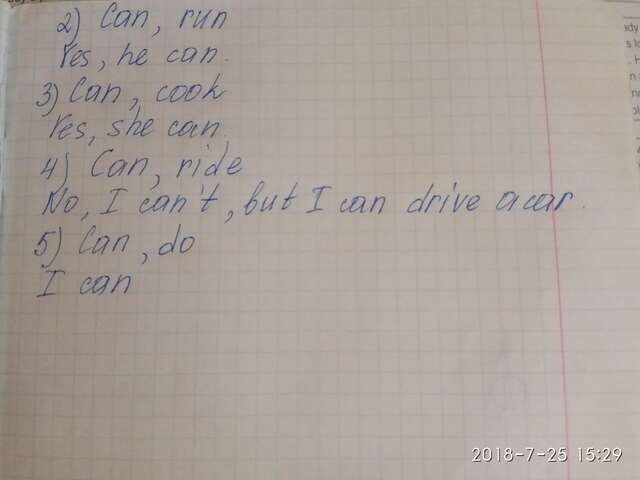 2) Can, run
Yes, he can.
3) Can, cook
Yes, she can.
4) Can, ride
No, I can't, but I can drive a car.
5) Can, do
I can
2018-7-25 15:29